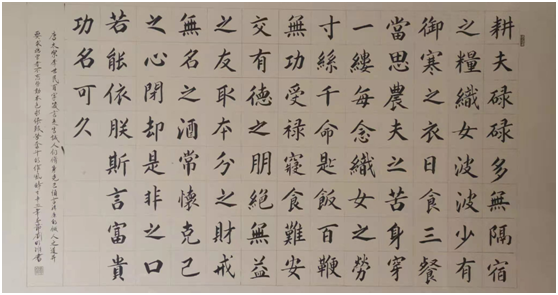 耕夫碌碌多無隔宿
之糧織女波波少有
御寒之衣日食三餐
當思農夫之苦身穿
一縷每念織女之勞
寸絲千命匙飯百鞭
無功受禄寢食難安
交有德之朋絕無益
之友取本分之財戒
無名之酒常懷克己
之心閉却是非之口
若能依朕斯言富貴
功名可久
唐太宗李世民百字箴言